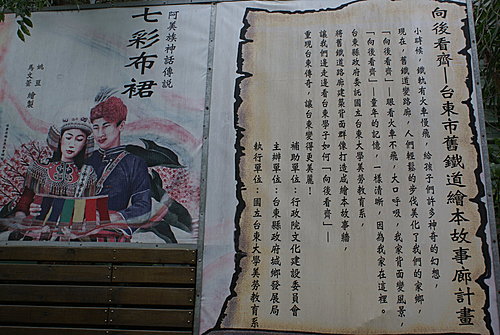 阿美族神話傳說
七彩布裙
姚亘
馬文蓳 繪製
向後看齊—台東市舊鐵道繪本故事廊計畫
小時候，鐵軌有火車慢飛，給孩子們許多神奇的幻想，
現在，舊鐵道變路廊，人們輕鬆的步伐美化了我們的家鄉，
「向後看齊」—跟著火車不飛，大口呼吸，我家背面變風景
「向後看齊」—童年的記憶，一樣清晰，因為我家在這裡。
台東縣政府委託國立台東大學美勞教育系，
將舊鐵道路廊建築背面群像打造成繪本故事牆
讓我們邊走邊看台東學子如何「向後看齊」—
重現台東傳奇，讓台東變得更美麗！
補助單位：行政院文化建設委員會
主辦單位：台東縣政府城鄉發展局
執行單位：國立台東大學美勞教育系